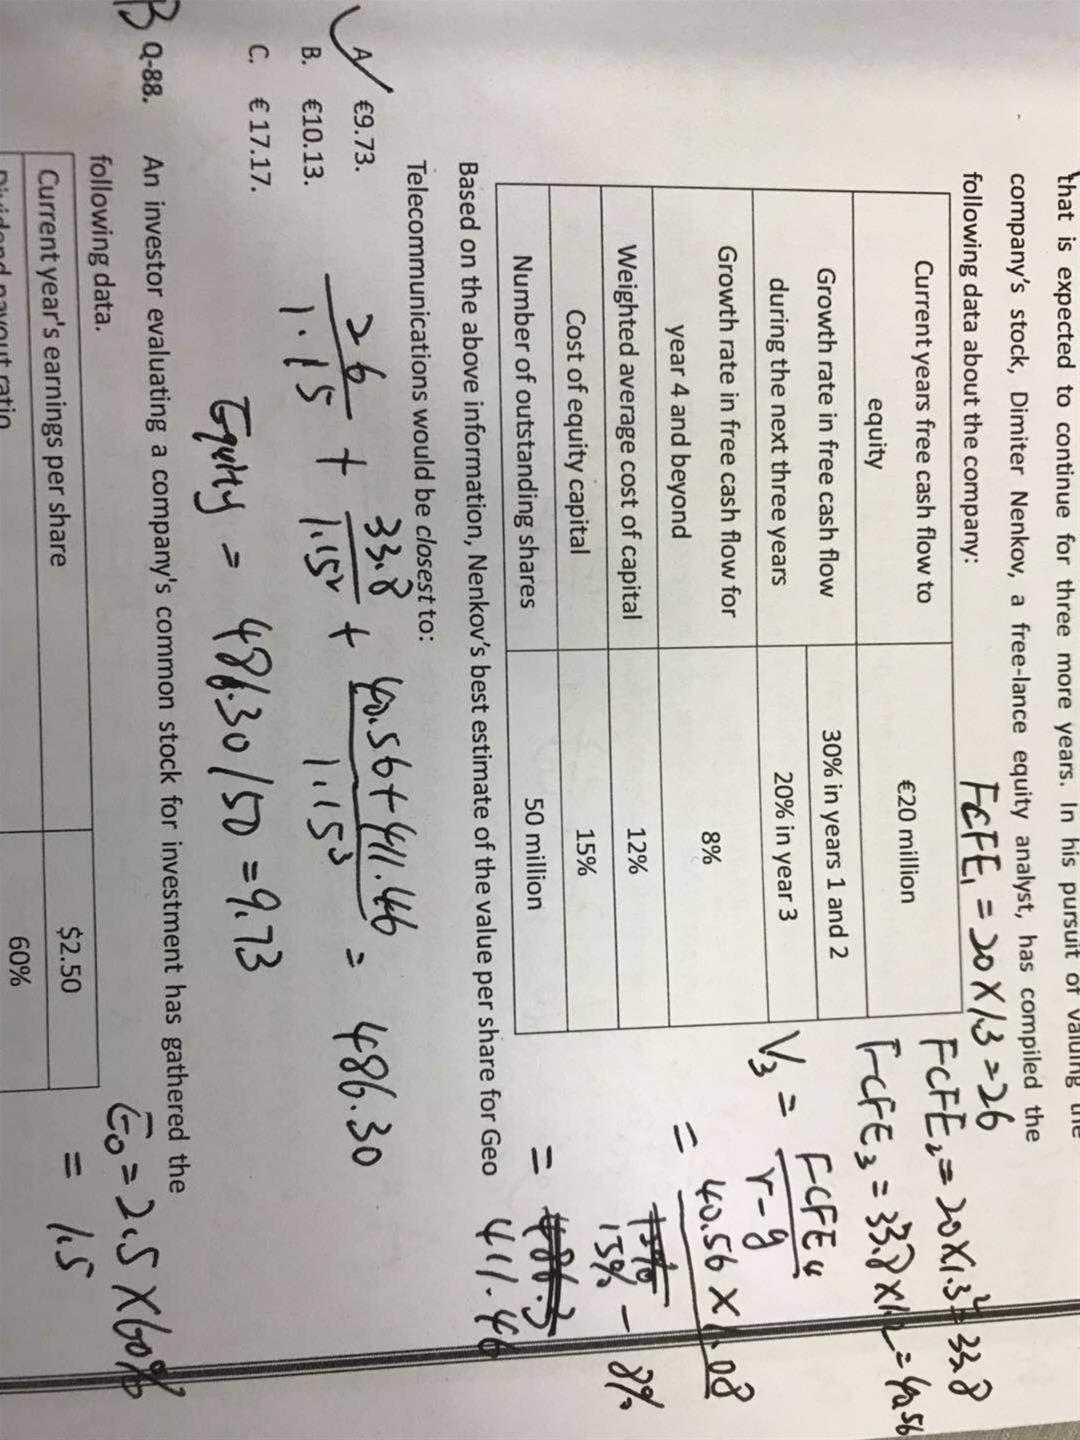 that is expected to continue for three more years. In his pursuit of valuing the
company's stock, Dimiter Nenkov, a free-lance equity analyst, has compiled the
following data about the company:
FCFE₁ = 20 X 1.3 = 26
FCFE₂ = 20 X 1.3² = 33.8
FCFE₃ = 33.8 X 1.2 = 40.56
Current years free cash flow to equity €20 million
Growth rate in free cash flow during the next three years 30% in years 1 and 2
20% in year 3
Growth rate in free cash flow for year 4 and beyond 8%
Weighted average cost of capital 12%
Cost of equity capital 15%
Number of outstanding shares 50 million
V₃ = FCFE₄ / r-g
= 40.56 X 1.08 / 15% - 8%
= 411.46
Based on the above information, Nenkov's best estimate of the value per share for Geo
Telecommunications would be closest to:
A €9.73.
B. €10.13.
C. €17.17.
26/1.15 + 33.8/1.15² + 40.56+411.46/1.15³ = 486.30
Equity = 486.30/50 = 9.73
B Q-88. An investor evaluating a company's common stock for investment has gathered the
following data.
= 2.5 X 60%
= 1.5
Current year's earnings per share $2.50
Dividend payout ratio 60%